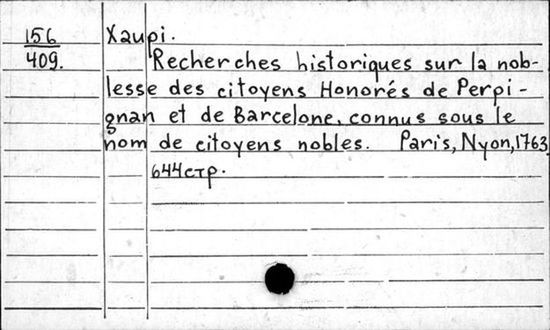 156
409.
Xaupi.
Recherches historiques sur la nob-
lesse des citoyens Honorés de Perpi-
gnan et de Barcelone, connus sous le
nom de citoyens nobles. Paris, Nyon, 1763
644стр.